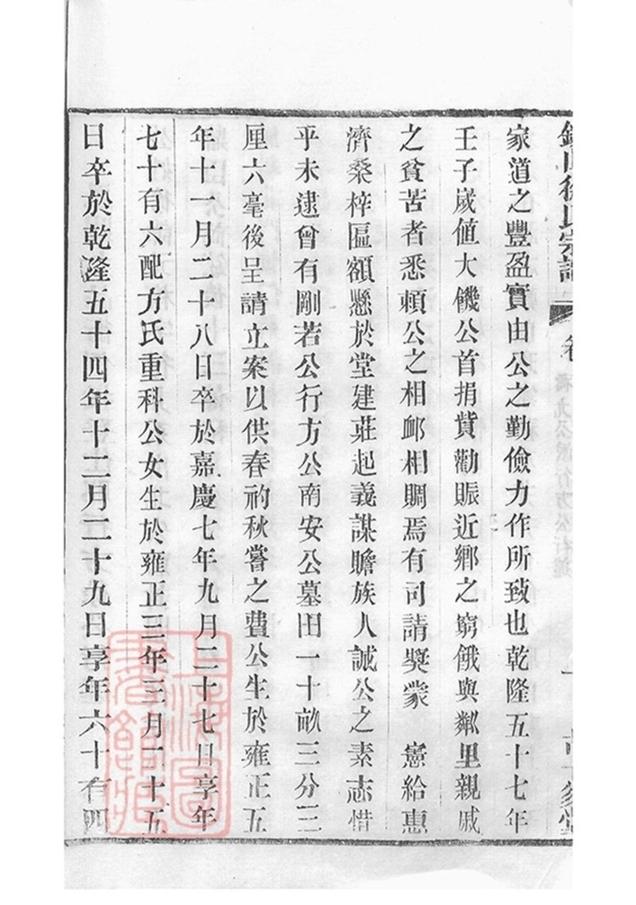 家道之豐盈實由公之勤儉力作所致也乾隆五十七年
壬子歲値大饑公首捐貲勸賑近鄕之窮餓與鄰里親戚
之貧苦者悉賴公之相卹相賙焉有司請奬蒙 憲給惠
濟桑梓匾額懸於堂建莊起義謀贍族人誠公之素志惜
乎未逮曾有剛若公行方公南安公墓田一十畝三分三
厘六毫後呈請立案以供春礿秋嘗之費公生於雍正五
年十一月二十八日卒於嘉慶七年九月二十七日享年
七十有六配方氏重科公女生於雍正三年三月二十五
日卒於乾隆五十四年十二月二十九日享年六十有四